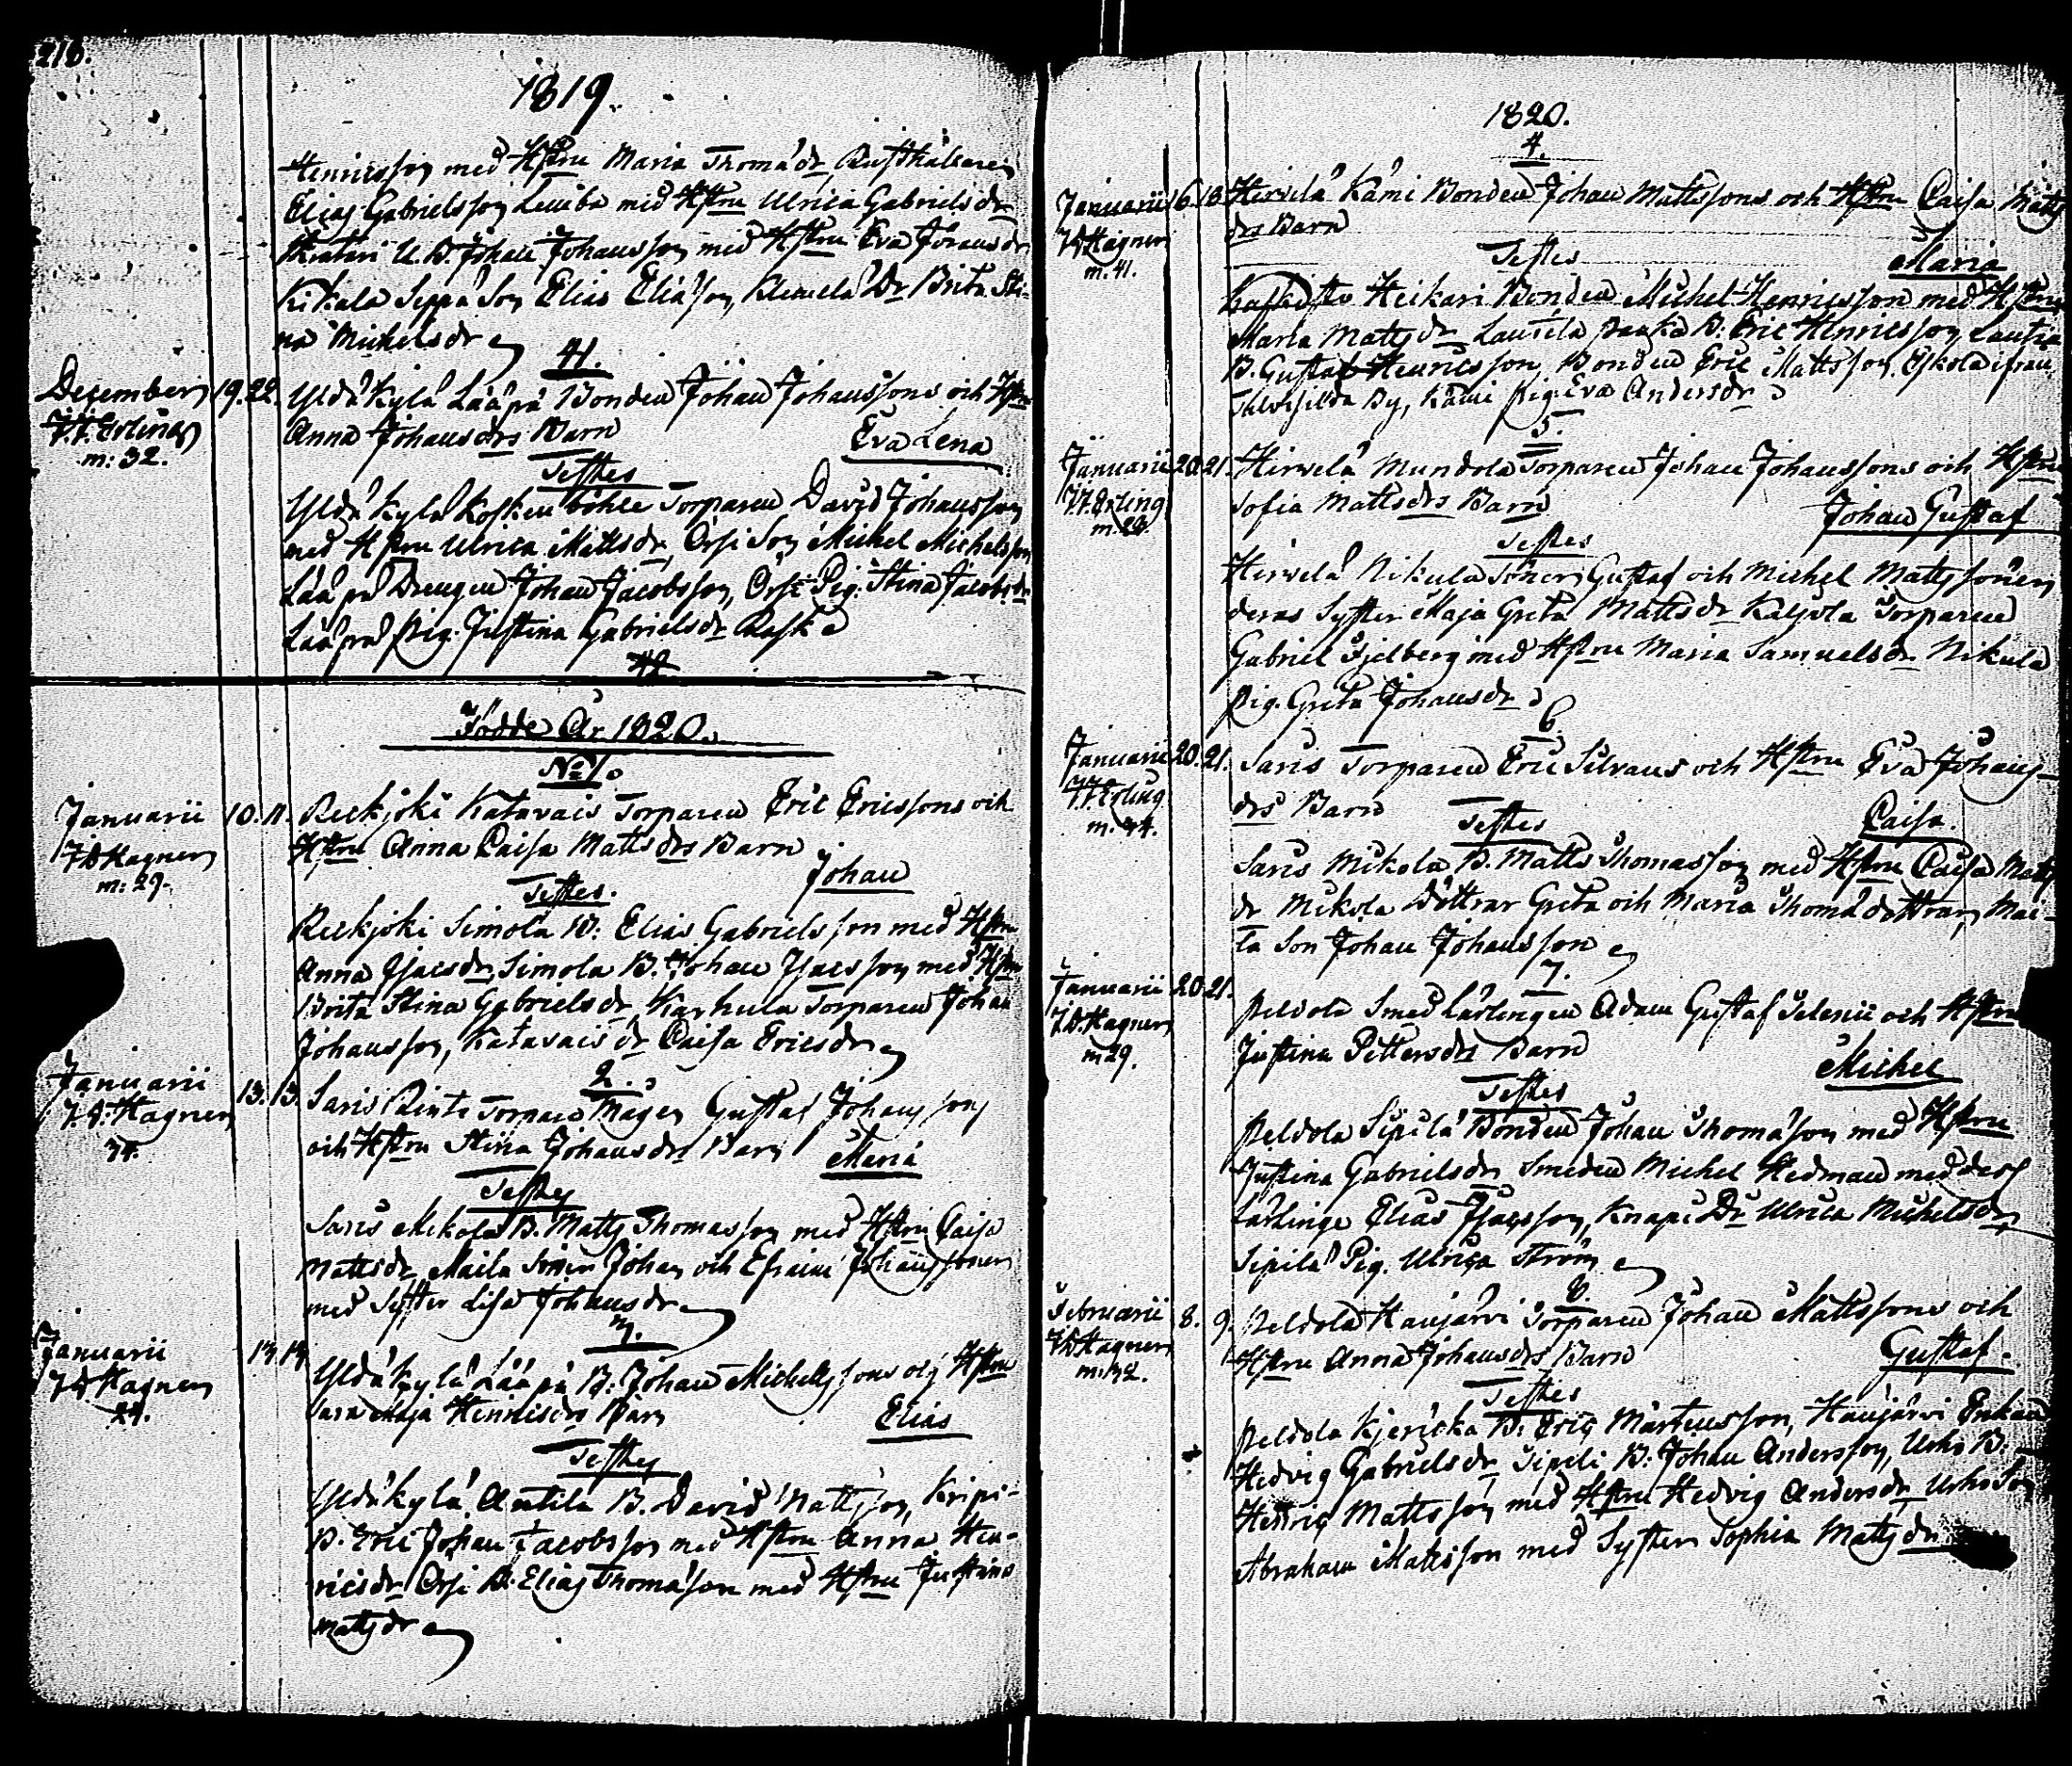 1819.
Henricsson med Hstru Maria Thomædr, Rusthållaren
Elias Gabrielsson Leuiba med Hstru Ulrica Gabrielsdr
U. B. Johan Johansson med Hstru Eva Johansdr
Kikala Seppä Son Elias Eliæson, Klemelä Dr Brita Sti-
na Michelsdr
41.
Decemberis 19. 22. Yldäkylä Lääpä Bonden Johan Johanssons och Hstru
J. F. Erling Anna Johansdrs Barn Eva Lena
m: 32.
Testes
Yldäkylä Koskenböhle Torparen David Johansson
med Hstru Ulrica Mattsdr, Orsi Son Michel Michelsson
Lääpä Drengen Johan Jacobsson, Orsi Pig. Stina Jacobsdr
Lääpä Pig. Justina Gabrielsdr Rask
42
Födde År 1820.
No 1.
Januarii 10. 11. Reckjoki Katavais Torparen Eric Ericssons och
J D Hagner Hstru Anna Caisa Mattsdrs Barn
m: 29. Johan
Testes.
Reckjoki Simola B: Elias Gabrielsson med Hstru
Anna Isacsdr, Simola B. Johan Isacsson med Hstru
Brita Stina Gabrielsdr, Karhula Torparen Johan
Johansson, Katavais dr Caisa Ericsdr
2.
Januarii 13. 13. Saris Torpare Mågen Gustaf Johansson
J. D. Hagner och Hstru Stina Johansdrs Barn Maria
34.
Testes
Saris Mikola B. Matts Thomasson med Hstru Caisa
Mattsdr, Maila Söner Johan och Efraim Johanssöner
med Syster Lisa Johansdr
3.
Januarii 13. 14. Yldäkylä Lääpä B: Johan Michelssons och Hstru
J D Hagner Sara Maja Henricsdrs Barn Elias
29.
Testes
Yldäkylä Antila B. David Mattsson, Kripi-
B. Eric Johan Jacobsson med Hstru Anna Hen-
ricsdr, Orsi B. Elias Thomæson med Hstru Justina
Mattsdr
1820.
4.
Januarii 16. 18. Hirvelä Kämi Bonden Johan Mattssons och Hstru Caisa Matts
J D Hagner drs Barn
m. 41.
Testes Maria
Heikari Bonden Michel Henricsson med Hstru
Maria Mattsdr Lautela B. Eric Henricsson, Lautia
B. Gustaf Henricsson, Bonden Eric Mattsson Eskola ifrån
By, Kämi Pig. Eva Andersdr
5.
Januarii 20. 21. Hirvelä Mundola Torparen Johan Johanssons och Hstru
J. F. Erling Sofia Mattsdrs Barn Johan Gustaf
Testes
Hirvelä Nikula Söner Gustaf och Michel Mattssöner
deras Syster Maja Greta Mattsdr Kaljola Torparen
Gabriel Sjelberg med Hstru Maria Samuelsdr Nikula
Pig. Greta Johansdr
6.
Januarii 20. 21. Saris Torparen Eric Silvans och Hstru Eva Johans-
J. F. Erling drs Barn Caisa.
m. 34.
Testes
Saris Mikola B. Matts Thomasson med Hstru Caisa Matts
dr Mikola Döttrar Greta och Maria Thomædöttrar, Mai-
la Son Johan Johansson
7.
Januarii 20. 21. Peldola Smed Lärlingen Adam Gustaf Selenii och Hstru
J. D. Hagner Justina Pettersdrs Barn Michel
m 29.
Testes
Peldola Sipilä Bonden Johan Thomæson med Hstru
Justina Gabrielsdr, Smeden Michel Hedman med dess
Lärlinge Elias Isacsson, Knapi Dr Ulrica Michelsdr
Sipilä Pig. Ulrica Ström
8.
Februarii 8. 9. Peldola Haujärvi Torparen Johan Mattssons och
J D Hagner Hstru Anna Johansdrs Barn Gustaf.
m. 32.
Testes
Peldola Kjericka B: Eric Mårtensson, Haujärvi Enkan
Hedvig Gabrielsdr, Sipili B: Johan Andersson, Urho B:
Henric Mattsson med Hstru Hedvig Andersdr Urho Son
Abraham Mattsson med Syster Sophia Mattsdr